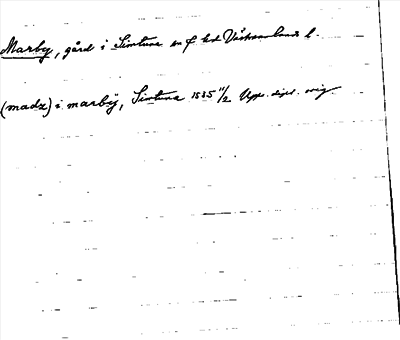 Marby, gård i Simtuna sn o led Västmanlands l.
(mads) i marbÿ, Simtuna 1535 11/2 Upps. dipl. orig.